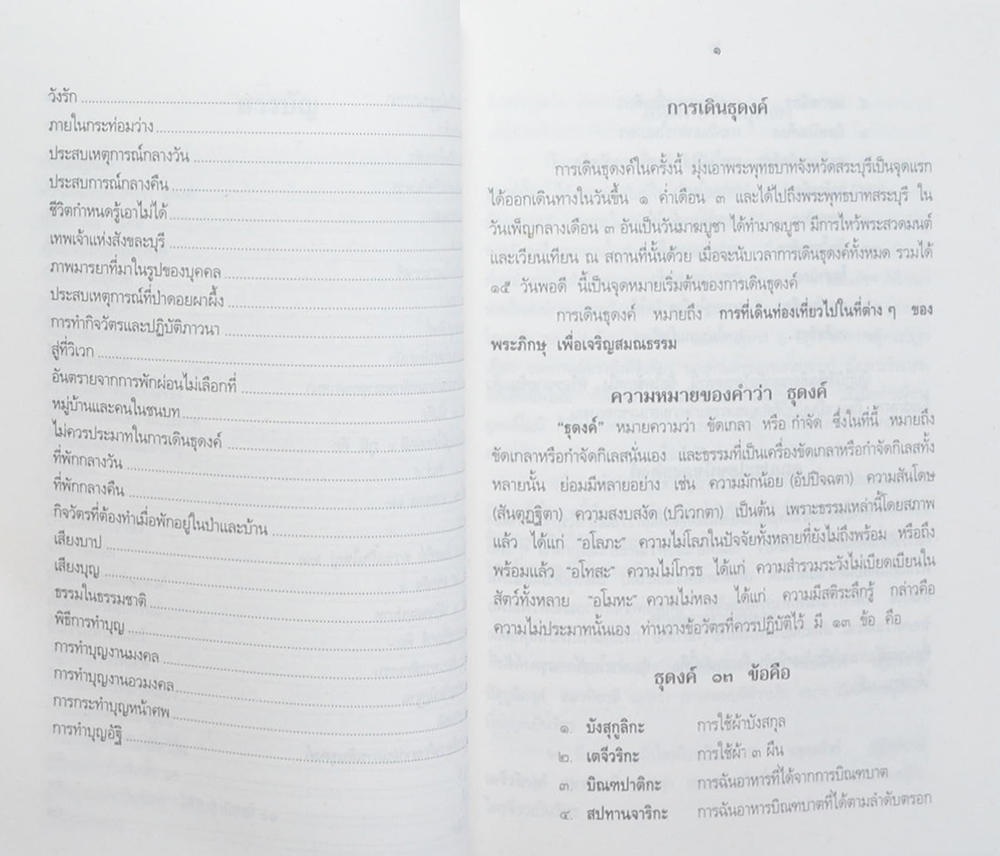 วังรัก
ภายในกระท่อมว่าง
ประสบเหตุการณ์กลางวัน
ประสบการณ์กลางคืน
ชีวิตกำหนดรู้เอาไม่ได้
เทพเจ้าแห่งสังขละบุรี
ภาพมารยาที่มาในรูปของบุคคล
ประสบเหตุการณ์ที่ป่าดอยผาผึ้ง
การทำกิจวัตรและปฏิบัติภาวนา
สู่ที่วิเวก
อันตรายจากการพักผ่อนไม่เลือกที่
หมู่บ้านและคนในชนบท
ไม่ควรประมาทในการเดินธุดงค์
ที่พักกลางวัน
ที่พักกลางคืน
กิจวัตรที่ต้องทำเมื่อพักอยู่ในป่าและบ้าน
เสียงบาป
เสียงบุญ
ธรรมในธรรมชาติ
พิธีการทำบุญ
การทำบุญงานมงคล
การทำบุญงานอวมงคล
การกระทำบุญหน้าศพ
การทำบุญอัฐิ
๑
การเดินธุดงค์
การเดินธุดงค์ในครั้งนี้ มุ่งเอาพระพุทธบาทจังหวัดสระบุรีเป็นจุดแรก
ได้ออกเดินทางในวันขึ้น ๑ ค่ำเดือน ๓ และได้ไปถึงพระพุทธบาทสระบุรี ใน
วันเพ็ญกลางเดือน ๓ อันเป็นวันมาฆบูชา ได้ทำมาฆบูชา มีการไหว้พระสวดมนต์
และเวียนเทียน ณ สถานที่นั้นด้วย เมื่อจะนับเวลาการเดินธุดงค์ทั้งหมด รวมได้
๑๕ วันพอดี นี้เป็นจุดหมายเริ่มต้นของการเดินธุดงค์
การเดินธุดงค์ หมายถึง การที่เดินท่องเที่ยวไปในที่ต่าง ๆ ของ
พระภิกษุ เพื่อเจริญสมณธรรม
ความหมายของคำว่า ธุดงค์
“ธุดงค์” หมายความว่า ขัดเกลา หรือ กำจัด ซึ่งในที่นี้ หมายถึง
ขัดเกลาหรือกำจัดกิเลสนั่นเอง และธรรมที่เป็นเครื่องขัดเกลาหรือกำจัดกิเลสทั้ง
หลายนั้น ย่อมมีหลายอย่าง เช่น ความมักน้อย (อัปปิจฉตา) ความสันโดษ
(สันตุฏฐิตา) ความสงบสงัด (ปวิเวกตา) เป็นต้น เพราะธรรมเหล่านี้โดยสภาพ
แล้ว ได้แก่ “อโลภะ” ความไม่โลภในปัจจัยทั้งหลายที่ยังไม่ถึงพร้อม หรือถึง
พร้อมแล้ว “อโทสะ” ความไม่โกรธ ได้แก่ ความสำรวมระวังไม่เบียดเบียนใน
สัตว์ทั้งหลาย “อโมหะ” ความไม่หลง ได้แก่ ความมีสติระลึกรู้ กล่าวคือ
ความไม่ประมาทนั้นเอง ท่านวางข้อวัตรที่ควรปฏิบัติไว้ มี ๑๓ ข้อ คือ
ธุดงค์ ๑๓ ข้อคือ
๑. บังสุกูลิกะ การใช้ผ้าบังสกุล
๒. เตจีวริกะ การใช้ผ้า ๓ ผืน
๓. บิณฑปาติกะ การฉันอาหารที่ได้จากการบิณฑบาต
๔. สปทานจาริกะ การฉันอาหารบิณฑบาตที่ได้ตามลำดับตรอก